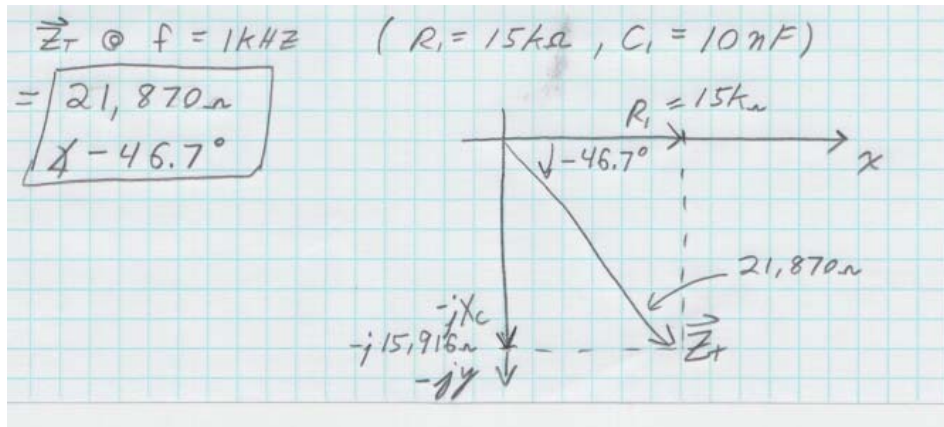 Z⃗T @ f = 1kHz (R1 = 15kΩ, C1 = 10nF)
= 21,870Ω
∡-46.7°
R1 = 15kΩ
-46.7°
x
21,870Ω
-jXc
-j15,916Ω
Z⃗T
-jy